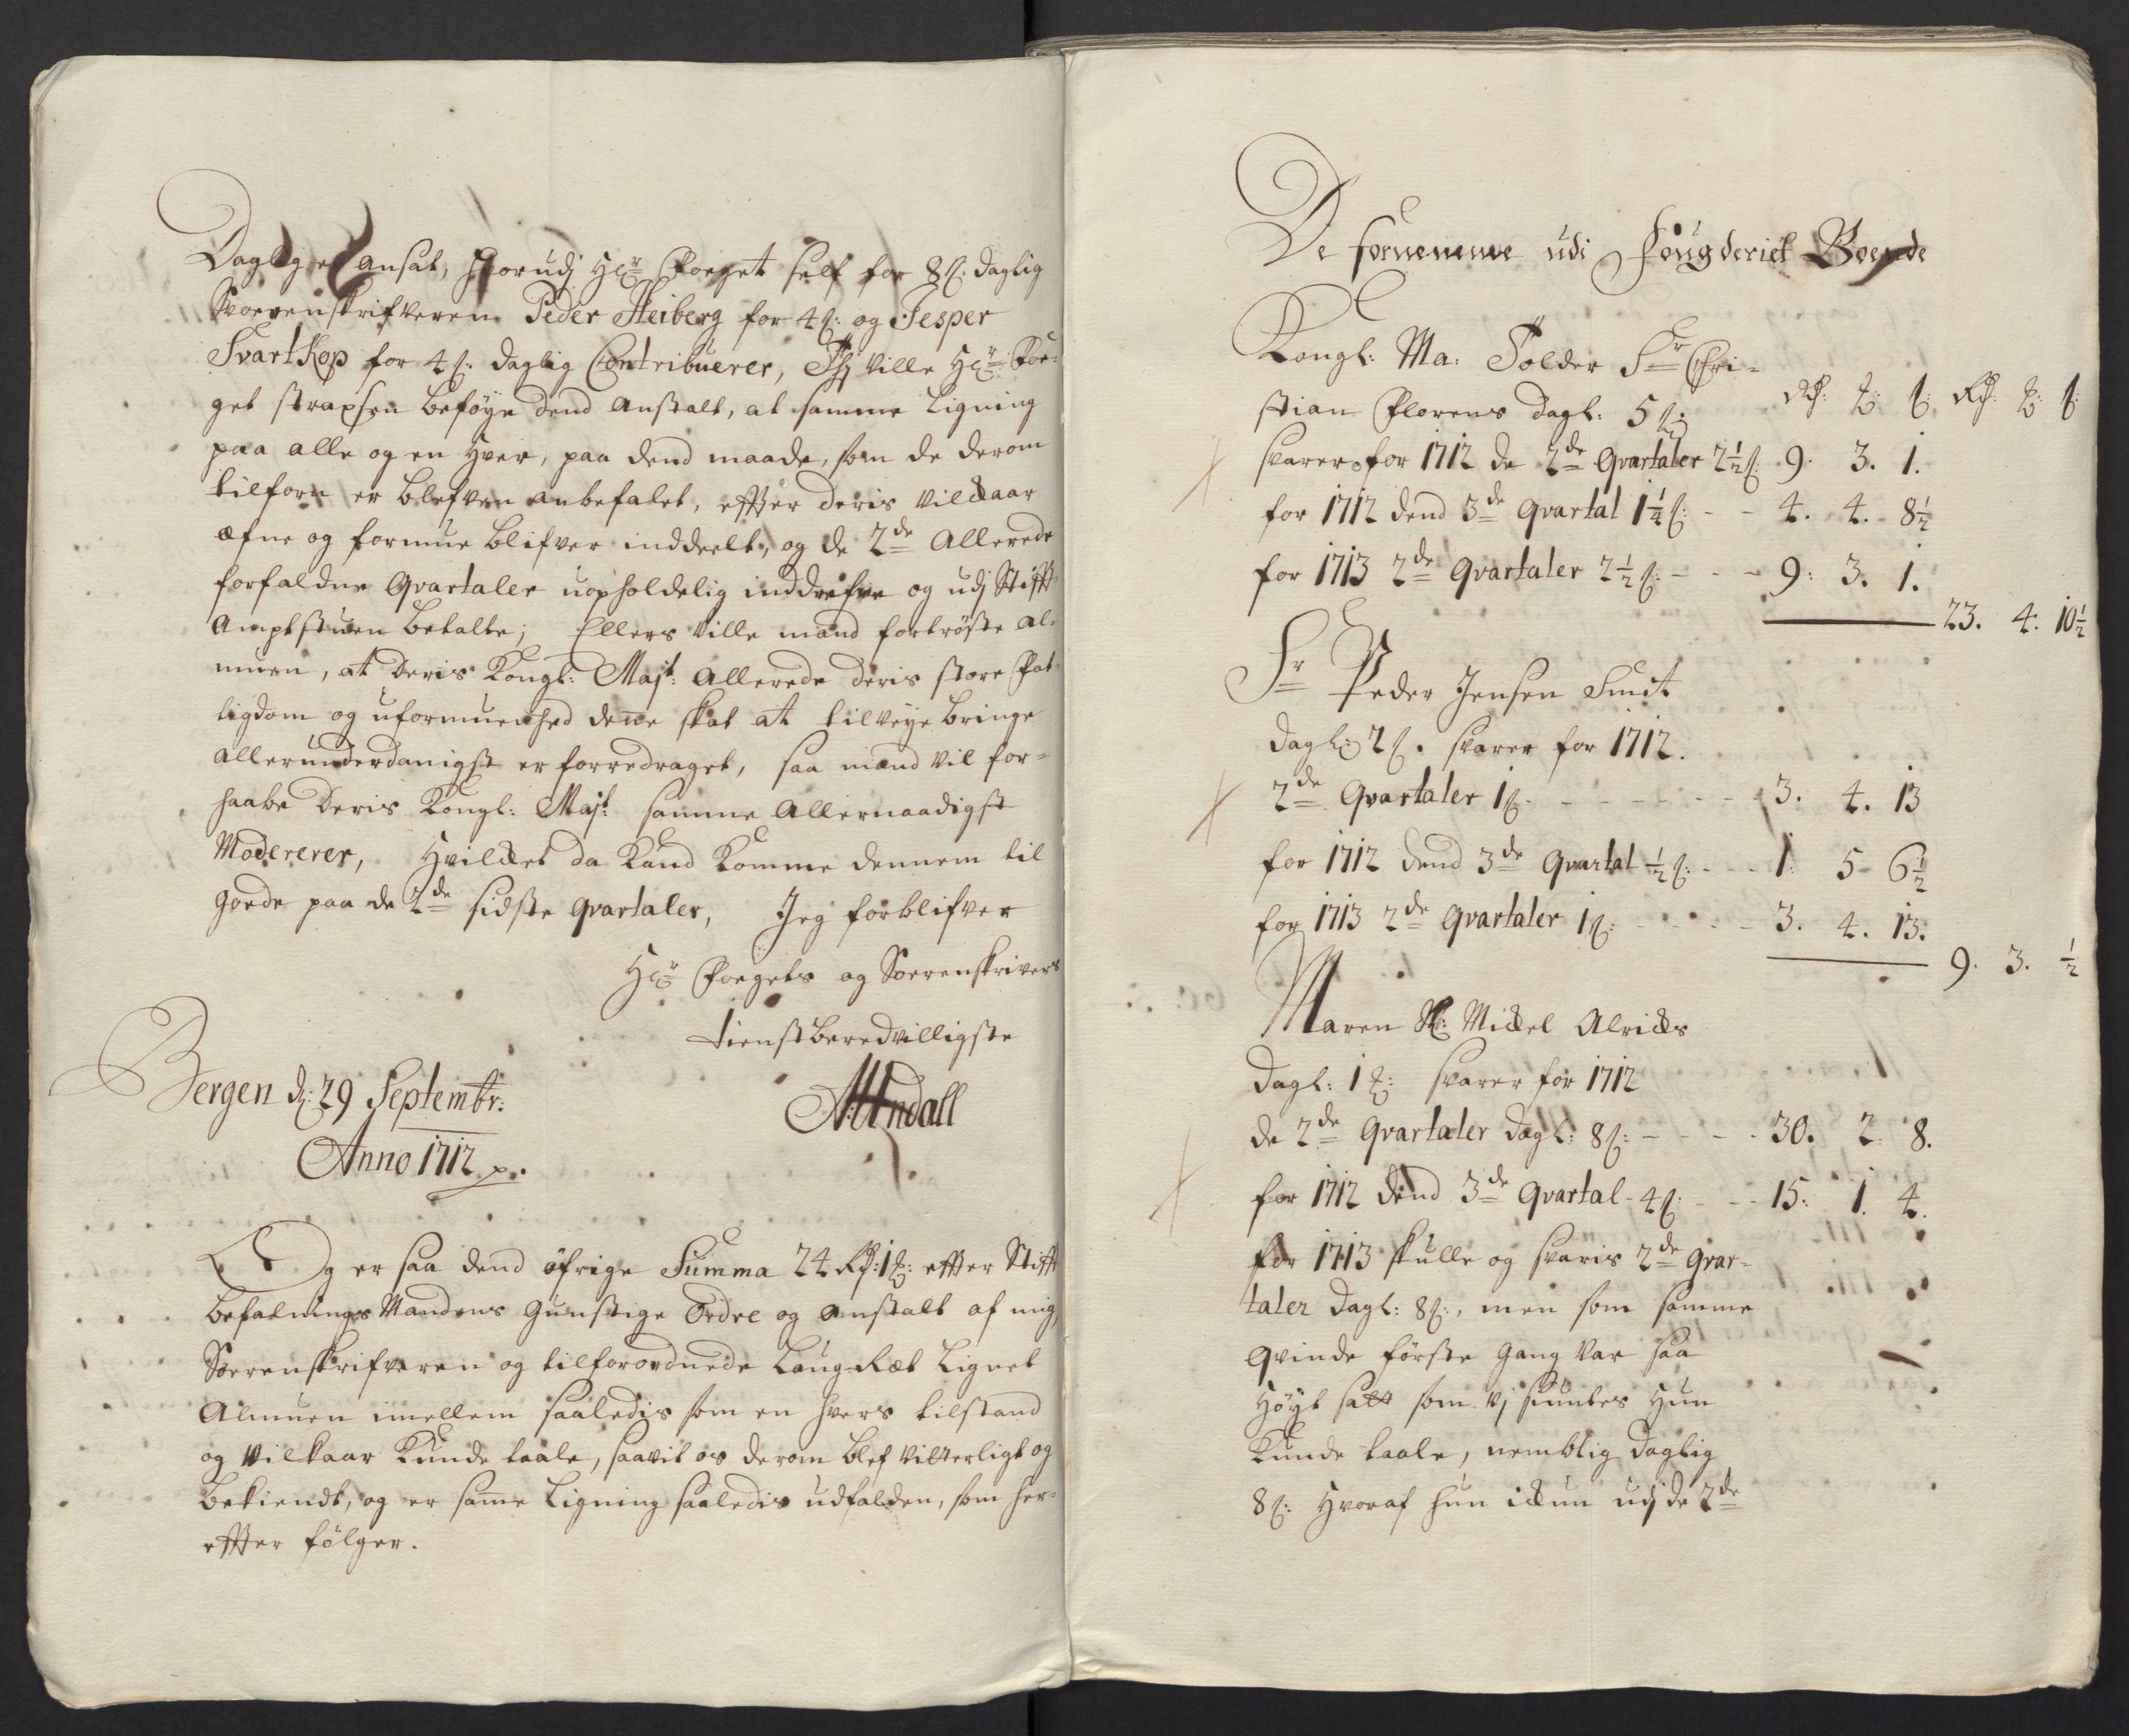 Daglig er ansat, hvorudj Hr Foeget self for 8 s: daglig
Soerenskrifveren Peder Heiberg for 4 s: og Jesper
SvartKop for 4 s. daglig Contribuerer, Thj ville Hr Foe-
get strapsen beføye dend anstalt, at samme Ligning
paa alle og en hver, paa dend maade, som de derom
tilforn er blefven anbefalet, effter deris vilckaar
æfne og formue blifver inddeelt, og de 2de Allerede
forfaldne Qvartaler uopholdelig inddrefve og udj Stifft
Amptstuen betalte; Ellers ville mand fortrøste al-
muen, at deris Kongl: Majt: Allerede deris store Fat-
tigdom og uformuenhed denne skat at tilveye bringe
allerunderdanigst er forredraget, saa mand vil for-
haabe Deris Kongl: Majt: samme Allernaadigst
Modererer, Hvilcket da Kand Komme dennem til
goede paa de 2de sidste qvartaler, Jeg forblifver
Hr Foegets og Soerenskrivers
tienstberedvilligste
Bergen d: 29 Septembr:
Anno 1712
Og er saa dend øfrige Summa 24 Rd: 1 : effter Stifft
befalnings Mandens Gunstige Ordre og anstalt af mig,
Sorenskrifveren og tilforordnede Laug-Ræt Lignet
Almuen imellem saaledis som en hvers tilstand
og vilkaar Kunde taale, saavit os derom blef vitterligt og
bekiendt, og er samme Ligning saaledis udfalden, som her-
effter følger.
De fornemme udi Fougderiet Boende
Kongl: Ma: Tolder Sr Chri-
stian Florens dagl: 5 s: Rd: : s: Rd: : s:
svarer for 1712 de 2de Qvartaler 2½ s: 9. 3. 1.
for 1712 dend 3de Qvartal 1¼ s: - - 4. 4. 8½
for 1713 2de Qvartaler 2½ s: - - - 9: 3. 1.
23. 4. 10½
Sr Peder Jensen Smit
dagl: 2 s. svarer for 1712.
2de Qvartaler 1 s. - - - - - - 3. 4. 13
for 1712 dend 3de Qvartal ½ s: - - - 1: 5 - 6½
for 1713 2de Qvartaler 1 s: - - - - - 3. 4. 13.
9. 3. ½
Maren Sl: Mickel Alricks
dagl: 1 : svarer for 1712
de 2de Qvartaler dagl: 8 s: - - - - 30. 2. 8.
for 1712 dend 3de Qvartal - 4 s: - - - 15: 1. 4.
for 1713 skulle og svaris 2de Qvar-
taler dagl: 8 s:, men som samme
Qvinde første gang var saa
høyt satt som vj siuntes hun
Kunde taale, nemblig daglig
8 s: hvoraf hun ickun udj de 2de